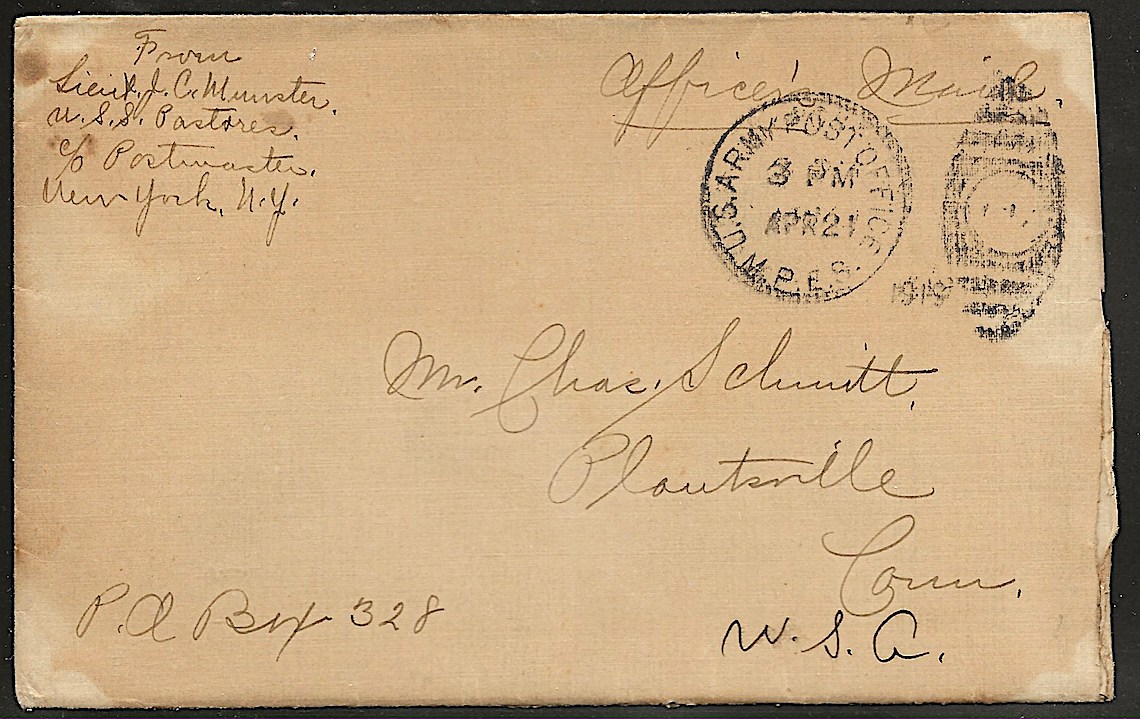 From
Lieut. J. C. Munster.
U.S.S. Pastores.
c/o Postmaster.
New York, N.Y.
Officer's Mail.
U.S. ARMY POST OFFICE
M.P.E.S.
3 PM
APR 21
1919
Mr. Chas. Schmitt,
Plantsville
Conn.
U.S.A.
P.O Box 328